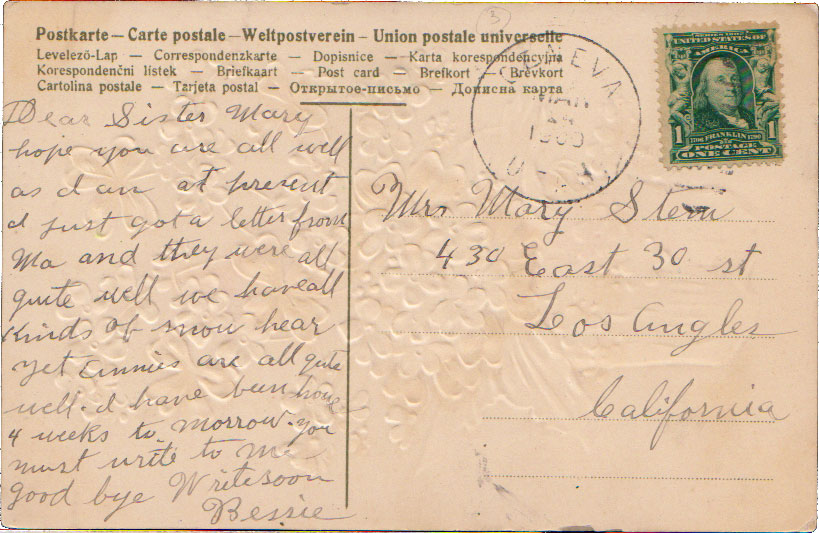 Postkarte – Carte postale – Weltpostverein – Union postale universelle
Levelező-Lap — Correspondenzkarte — Dopisnice — Karta korespondencyjna
Korespondenční lístek — Briefkaart — Post card — Brefkort — Brevkort
Cartolina postale — Tarjeta postal — Открытое-письмо — Дописна карта
3
GENEVA
MAR
1909
UNITED STATES OF
AMERICA
1 1706 FRANKLIN 1790 1
POSTAGE
ONE CENT
Dear Sister Mary
hope you are all well
as I am at present
I just got a letter from
Ma and they were all
quite well we have all
kinds of snow hear
yet Annies are all quite
well. I have been home
4 weeks to morrow. you
must write to me
good bye Write soon
Bessie
Mrs Mary Stern
430 East 30 st
Los Angles
California